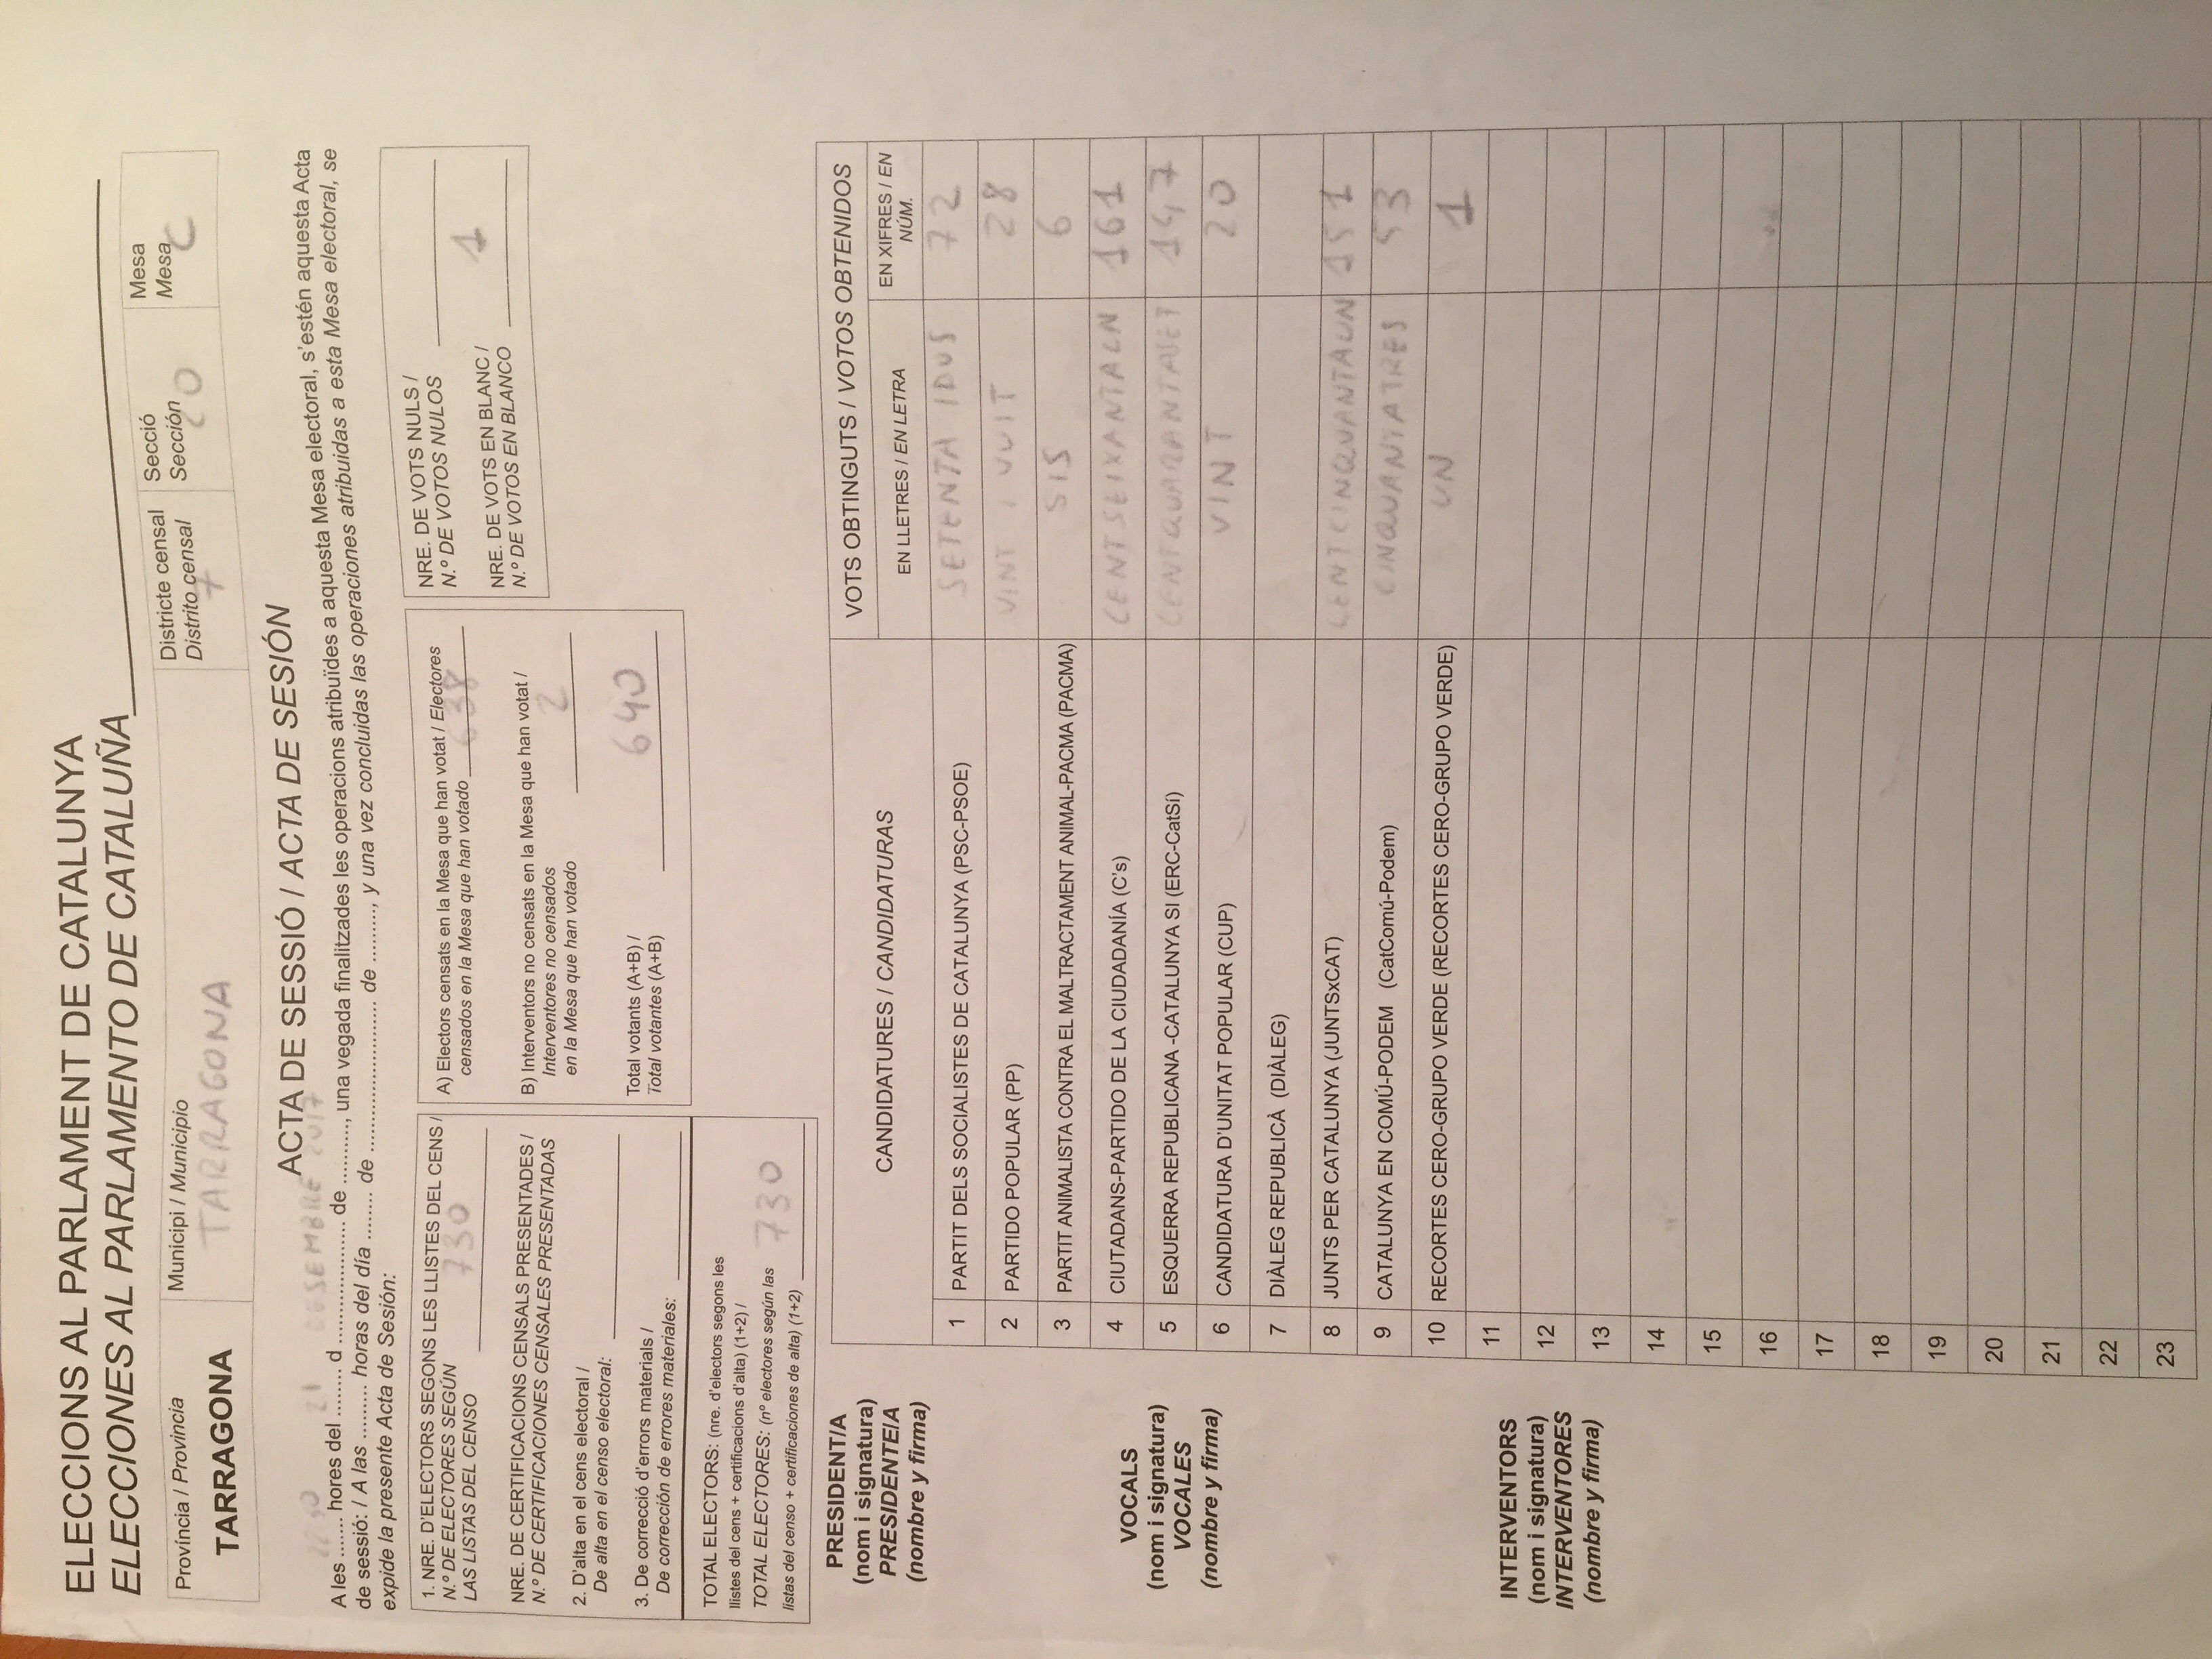 ELECCIONS AL PARLAMENT DE CATALUNYA
ELECCIONES AL PARLAMENTO DE CATALUÑA
Província / Provincia
TARRAGONA
Municipi / Municipio
TARRAGONA
Districte censal
Distrito censal
7
Secció
Sección
20
Mesa
Mesa
C
ACTA DE SESSIÓ / ACTA DE SESIÓN
21 DESEMBRE 2017
A les ....... hores del ........ d .................... de .........., una vegada finalitzades les operacions atribuïdes a aquesta Mesa electoral, s'estén aquesta Acta
de sessió: / A las ......... horas del día ........ de ......................... de ........., y una vez concluidas las operaciones atribuidas a esta Mesa electoral, se
expide la presente Acta de Sesión:
1. NRE. D'ELECTORS SEGONS LES LLISTES DEL CENS /
N.º DE ELECTORES SEGÚN
LAS LISTAS DEL CENSO 730
NRE. DE CERTIFICACIONS CENSALS PRESENTADES /
N.º DE CERTIFICACIONES CENSALES PRESENTADAS
2. D'alta en el cens electoral /
De alta en el censo electoral:
3. De correcció d'errors materials /
De corrección de errores materiales:
TOTAL ELECTORS: (nre. d'electors segons les
llistes del cens + certificacions d'alta) (1+2) /
TOTAL ELECTORES: (nº electores según las
listas del censo + certificaciones de alta) (1+2) 730
A) Electors censats en la Mesa que han votat / Electores
censados en la Mesa que han votado 638
B) Interventors no censats en la Mesa que han votat /
Interventores no censados
en la Mesa que han votado 2
Total votants (A+B) /
Total votantes (A+B) 640
NRE. DE VOTS NULS /
N.º DE VOTOS NULOS
NRE. DE VOTS EN BLANC /
N.º DE VOTOS EN BLANCO 1
PRESIDENT/A
(nom i signatura)
PRESIDENTE/A
(nombre y firma)
VOCALS
(nom i signatura)
VOCALES
(nombre y firma)
INTERVENTORS
(nom i signatura)
INTERVENTORES
(nombre y firma)
CANDIDATURES / CANDIDATURAS
VOTS OBTINGUTS / VOTOS OBTENIDOS
EN LLETRES / EN LETRA
EN XIFRES / EN
NÚM.
1 PARTIT DELS SOCIALISTES DE CATALUNYA (PSC-PSOE) SETENTA IDUS 72
2 PARTIDO POPULAR (PP) VINT I VUIT 28
3 PARTIT ANIMALISTA CONTRA EL MALTRACTAMENT ANIMAL-PACMA (PACMA) SIS 6
4 CIUTADANS-PARTIDO DE LA CIUDADANÍA (C's) CENTSEIXANTAUN 161
5 ESQUERRA REPUBLICANA -CATALUNYA SI (ERC-CatSí) CENTQUARANTASET 147
6 CANDIDATURA D'UNITAT POPULAR (CUP) VINT 20
7 DIÀLEG REPUBLICÀ (DIÀLEG)
8 JUNTS PER CATALUNYA (JUNTSxCAT) CENTCINQUANTAUN 151
9 CATALUNYA EN COMÚ-PODEM (CatComú-Podem) CINQUANTATRES 53
10 RECORTES CERO-GRUPO VERDE (RECORTES CERO-GRUPO VERDE) UN 1
11
12
13
14
15
16
17
18
19
20
21
22
23